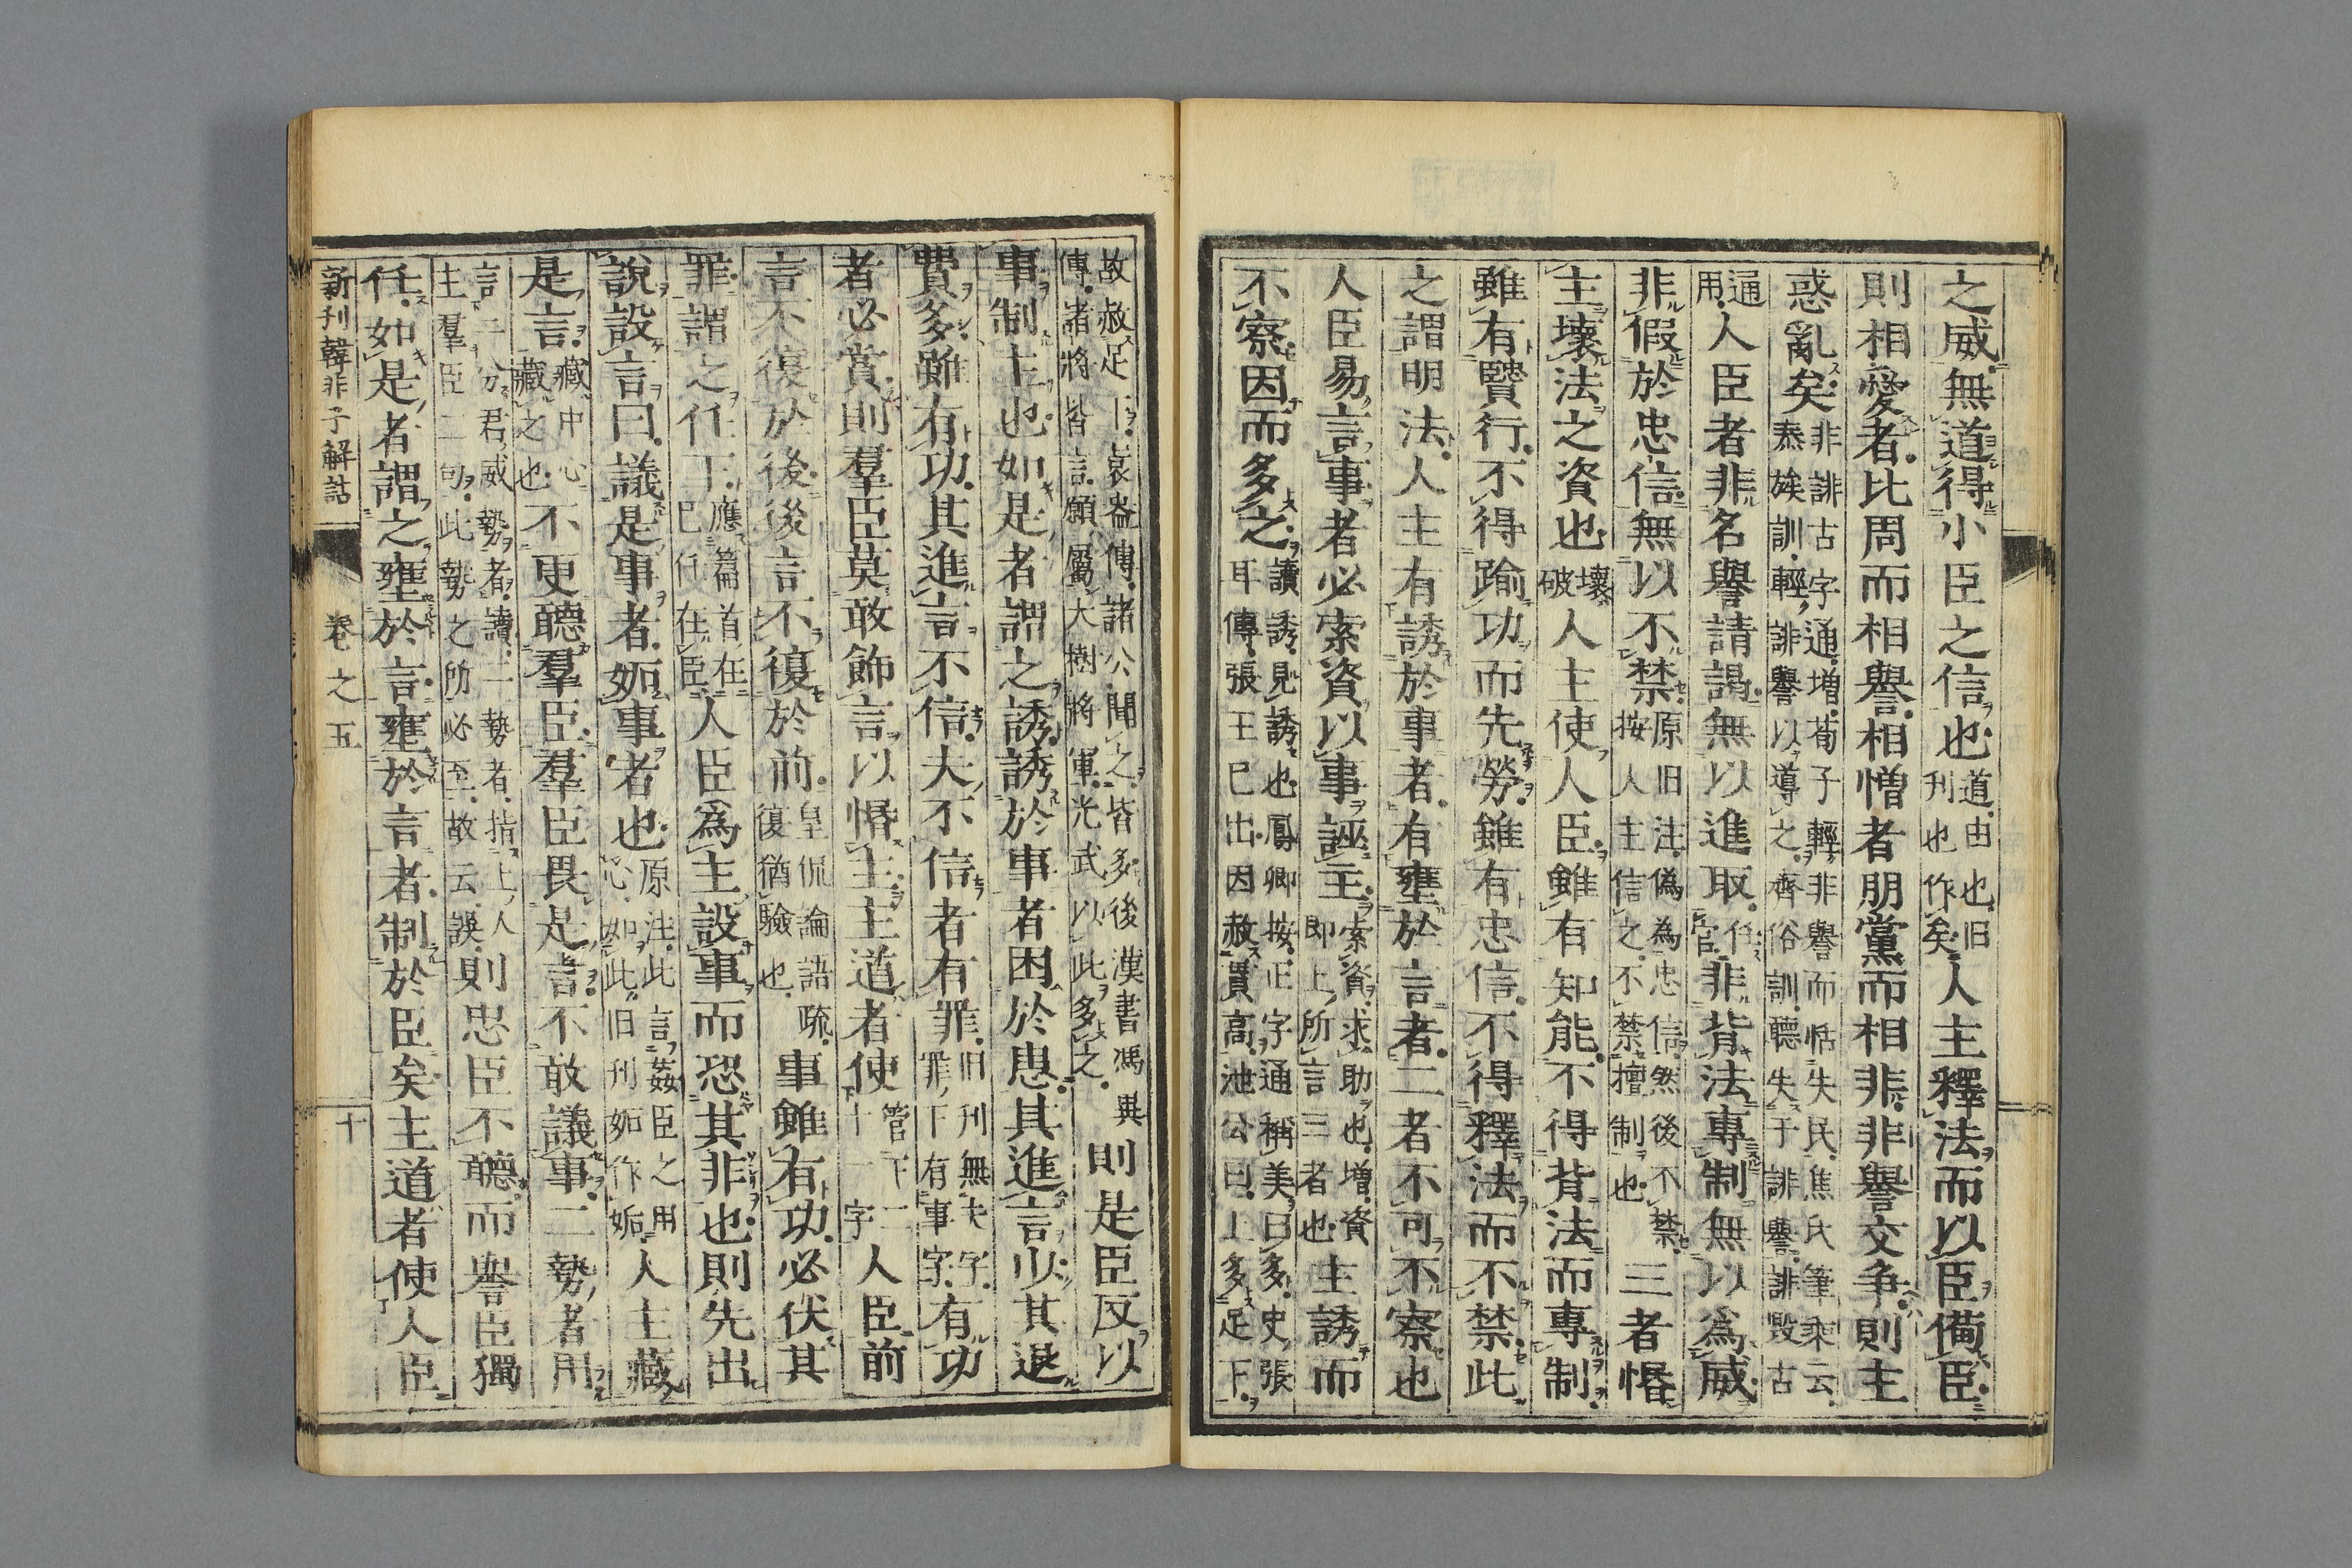 之威無道得小臣之信也道由也旧刊也作矣人主釋法而以臣備臣
則相愛者比周而相譽相憎者朋黨而相非非譽交争則主
惑亂矣非誹古字通増荀子輕非譽而恬失民焦氏筆乘云泰族訓輕誹譽以導之齊俗訓聽失于誹譽誹毀古
通用人臣者非名譽請謁無以進取任官非背法專制無以爲威
非假於忠信無以不禁原旧注偽為忠信然後不禁按人主信之不禁擅制也三者惛
主壞法之資也壞破人主使人臣雖有知能不得背法而專制
雖有賢行不得踰功而先勞雖有忠信不得釋法而不禁此
之謂明法人主有誘於事者有壅於言者二者不可不察也
人臣易言事者必索資以事誣主索資求助也増資即上所言三者也主誘而
不察因而多之讀誘見誘也鳳卿按正字通稱美曰多史張耳傳張王已出因赦貫高泄公曰上多足下
故赦足下袁盎傳諸公聞之皆多後漢書馮異傳諸將皆言願屬大樹將軍光武以此多之則是臣反以
事制主也如是者謂之誘誘於事者困於患其進言少其退
費多雖有功其進言不信夫不信者有罪旧刊無夫字罪下有事字有功
者必賞則羣臣莫敢飾言以惛主主道者使管下二十一字人臣前
言不復於後後言不復於前皇侃論語疏復猶驗也事雖有功必伏其
罪謂之任下應篇首在已任在臣人臣爲主設事而恐其非也則先出
說設言曰議是事者妬事者也原注此言姦臣之用心如此旧刊妬作姤人主藏
是言藏中心藏之也不更聽羣臣羣臣畏是言不敢議事二勢者用
言二分君威勢者讀二勢者指上人主羣臣二句此勢之所必至故云誤則忠臣不聽而譽臣獨
任如是者謂之壅於言壅於言者制於臣矣主道者使人臣
新刊韓非子解詁
卷之五
十